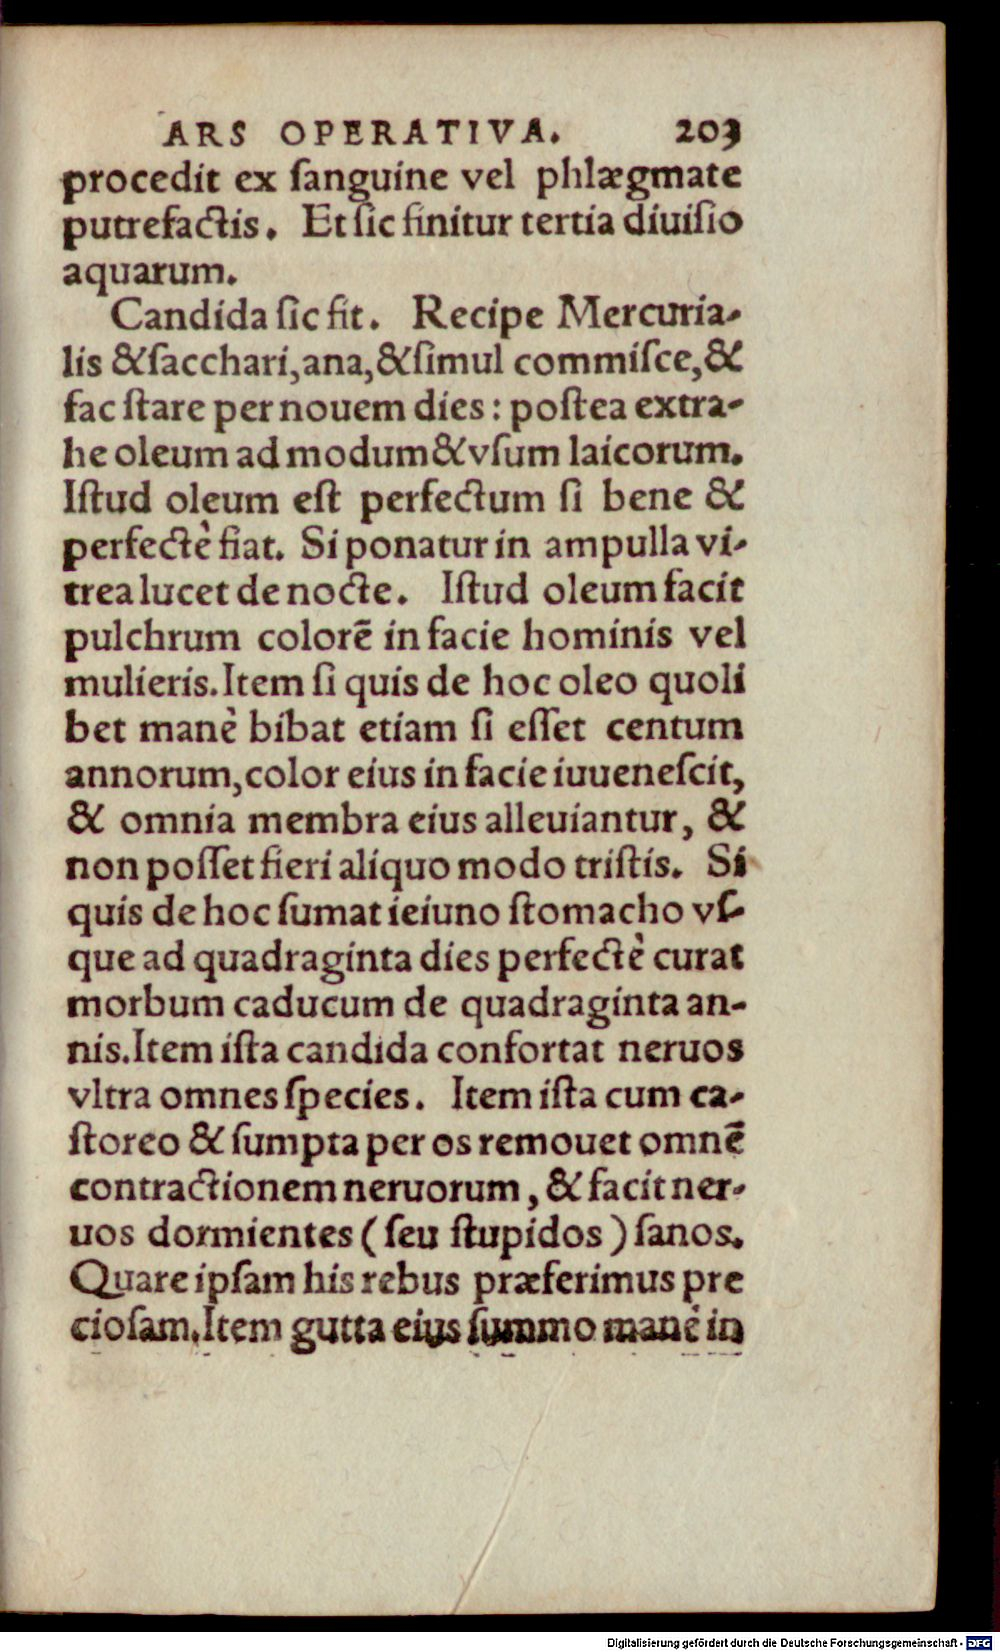 ARS OPERATIVA. 203
procedit ex ſanguine vel phlægmate
putrefactis. Et ſic finitur tertia diuiſio
aquarum.
Candida ſic fit. Recipe Mercuria-
lis & ſacchari, ana, & ſimul commiſce, &
fac ſtare per nouem dies: poſtea extra-
he oleum ad modum & vſum laicorum.
Iſtud oleum eſt perfectum ſi bene &
perfectè fiat. Si ponatur in ampulla vi-
trea lucet de nocte. Iſtud oleum facit
pulchrum colorē in facie hominis vel
mulieris. Item ſi quis de hoc oleo quoli
bet manè bibat etiam ſi eſſet centum
annorum, color eius in facie iuueneſcit,
& omnia membra eius alleuiantur, &
non poſſet fieri aliquo modo triſtis. Si
quis de hoc ſumat ieiuno ſtomacho vſ-
que ad quadraginta dies perfectè curat
morbum caducum de quadraginta an-
nis. Item iſta candida confortat neruos
vltra omnes ſpecies. Item iſta cum ca-
ſtoreo & ſumpta per os remouet omnē
contractionem neruorum, & facit ner-
uos dormientes (ſeu ſtupidos) ſanos.
Quare ipſam his rebus præferimus pre
cioſam. Item gutta eius ſummo manè in
Digitalisierung gefördert durch die Deutsche Forschungsgemeinschaft - DFG